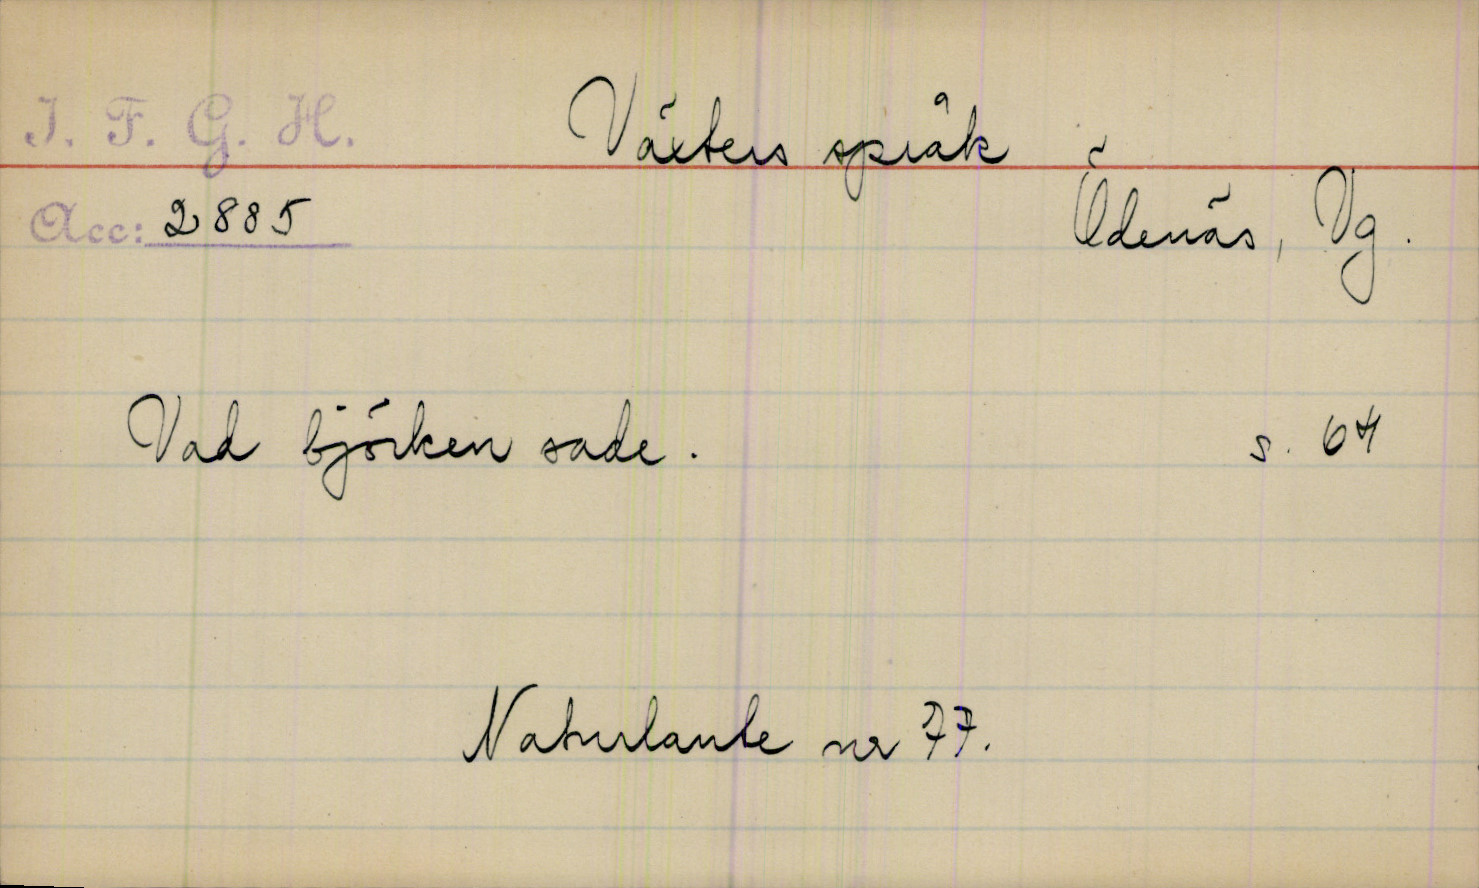 I. F. G. H.
Växters språk
Acc: 2885
Ödenäs, Vg.
Vad björken sade. s. 64
Naturlaute nr 77.